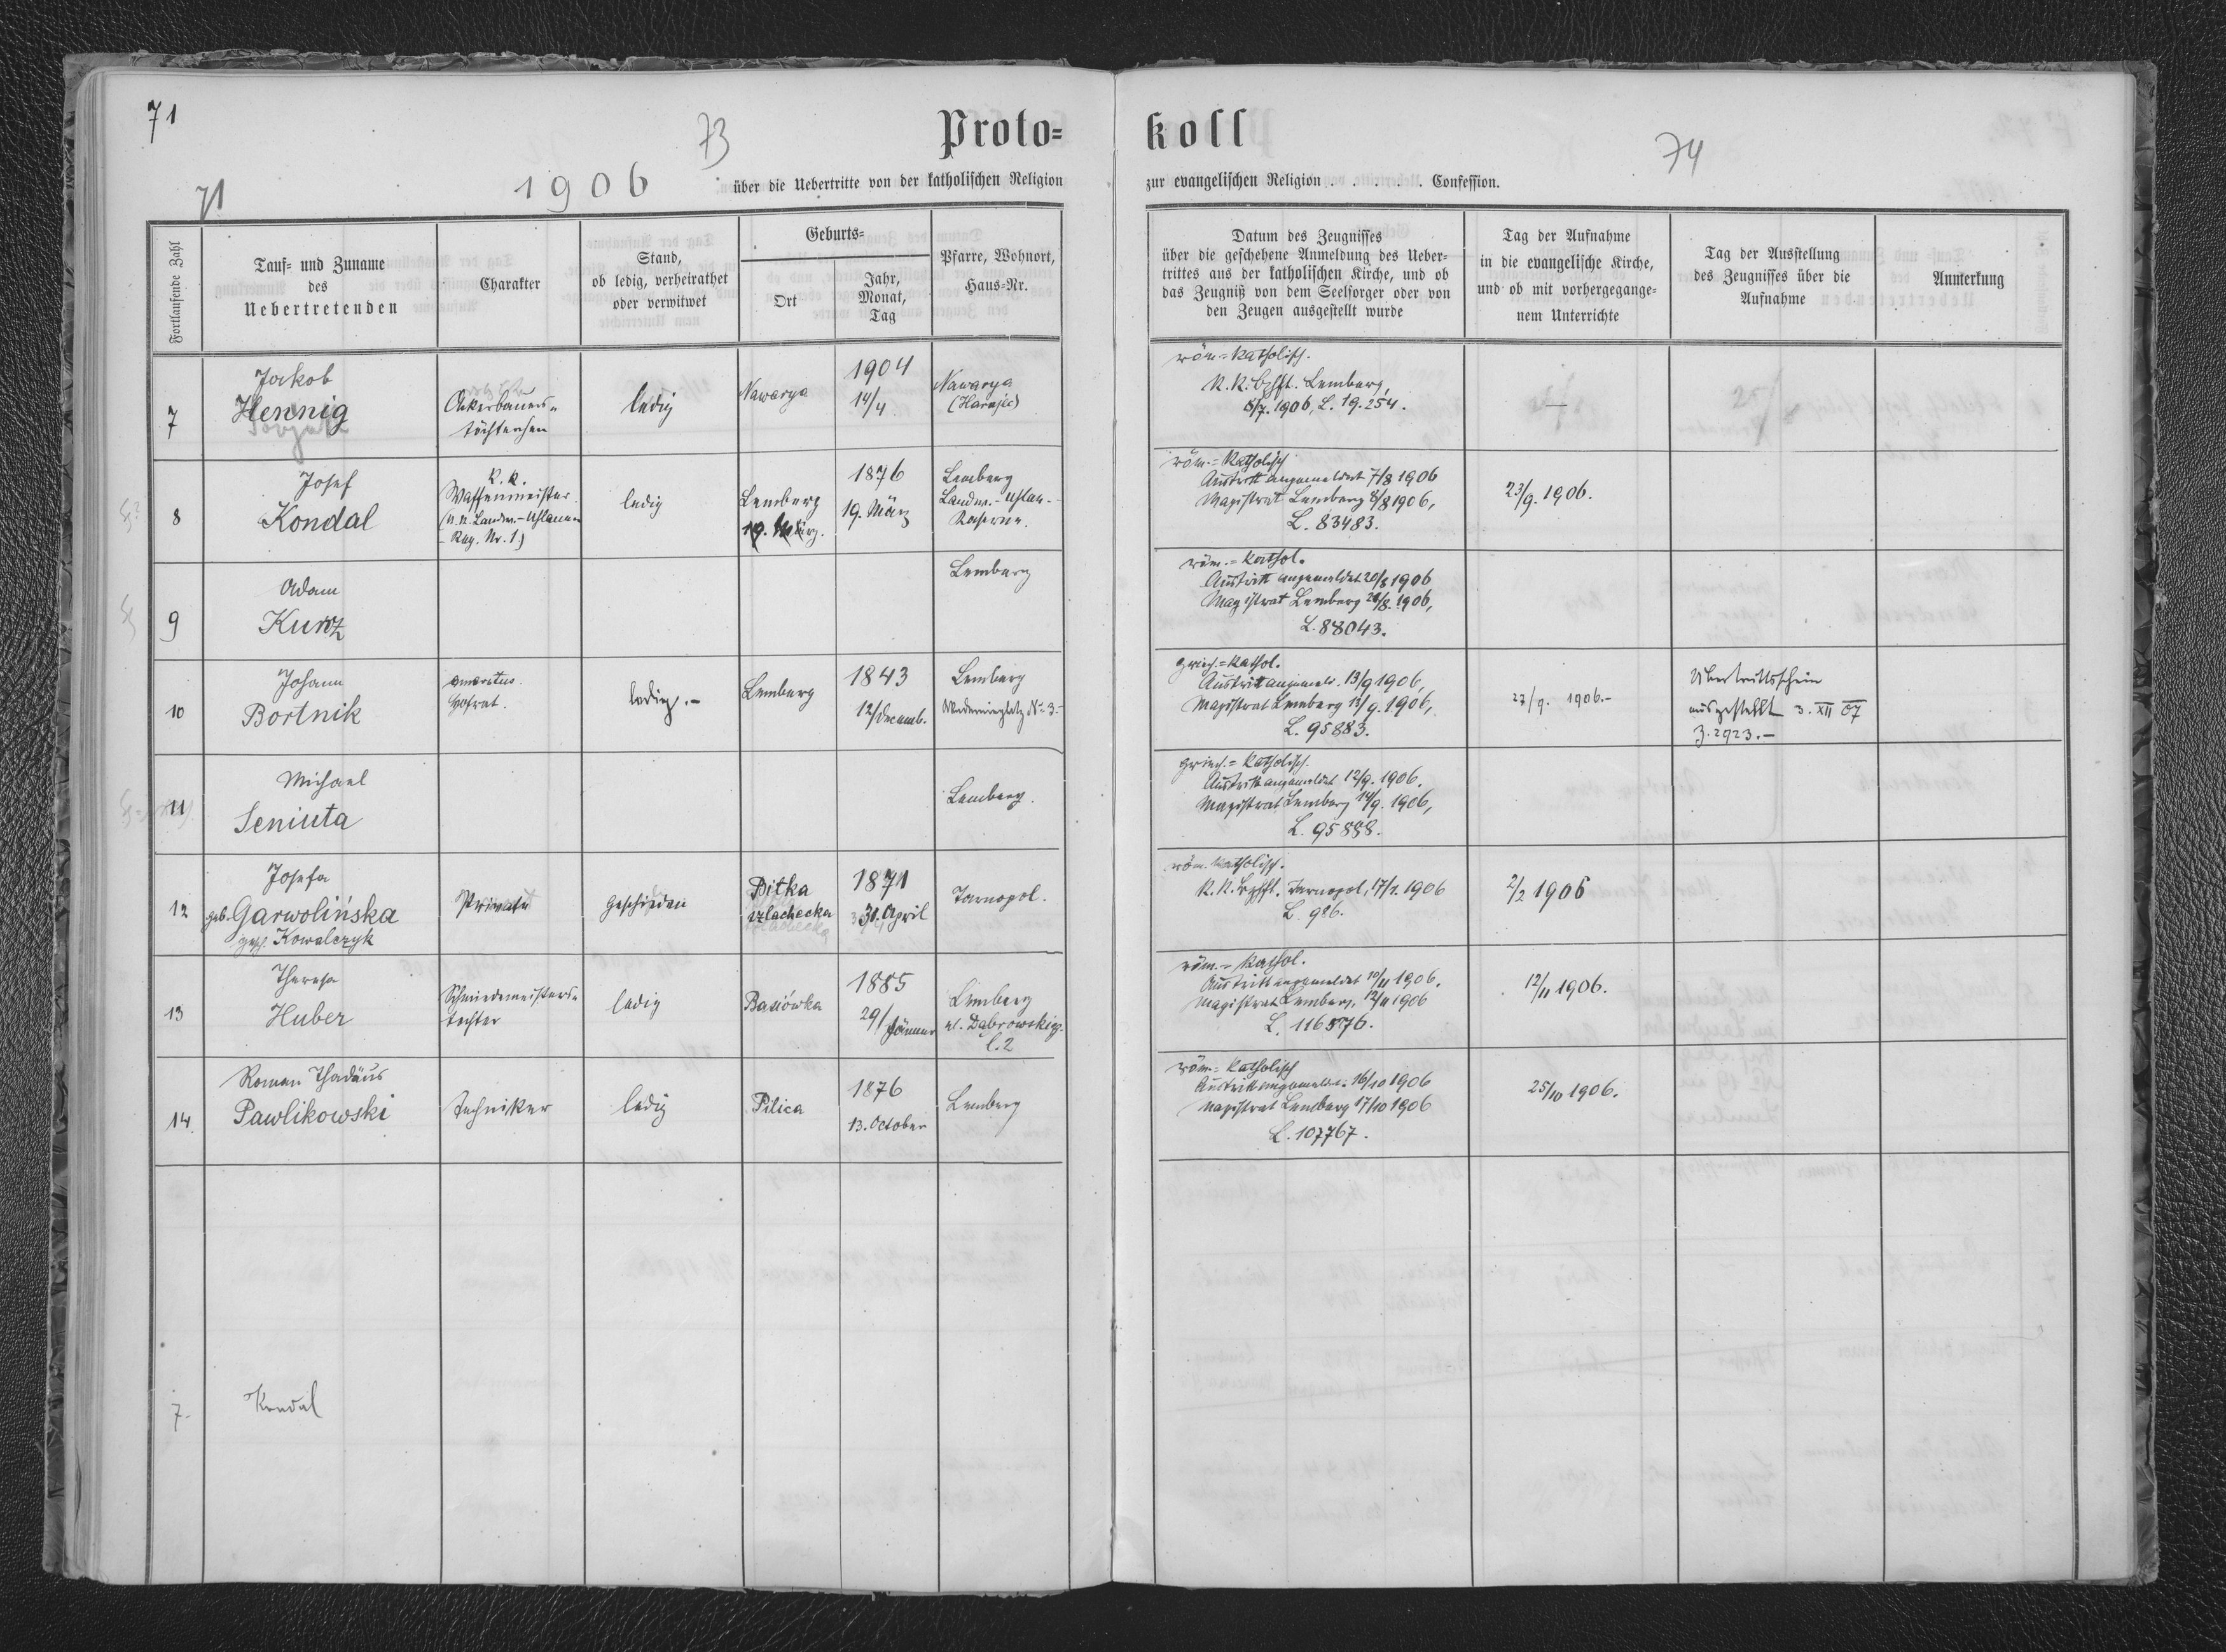 71
73
Proto=
koll
74
71
1906
über die Uebertritte von der katholischen Religion
zur evangelischen Religion . . . . . . Confession.
Fortlaufende Zahl
Tauf= und Zuname
des
Uebertretenden
Charakter
Stand,
ob ledig, verheirathet
oder verwitwet
Geburts=
Ort
Jahr,
Monat,
Tag
Pfarre, Wohnort,
Haus=Nr.
Datum des Zeugnisses
über die geschehene Anmeldung des Ueber=
trittes aus der katholischen Kirche, und ob
das Zeugniß von dem Seelsorger oder von
den Zeugen ausgestellt wurde
Tag der Aufnahme
in die evangelische Kirche,
und ob mit vorhergegange=
nem Unterrichte
Tag der Ausstellung
des Zeugnisses über die
Aufnahme
Anmerkung
7
Jakob
Hennig
Ackerbauers=
töchterchen
ledig
Nawarya
1904
14/4
Nawarya
röm=katholisch.
K.K. Bzhft. Lemberg,
8/7. 1906, L. 19.254.
—
8
Josef
Kondal
k. k.
Waffenmeister
(k.k. Landw.-Uhlanen
Reg. Nr. 1.)
ledig
Lemberg
19. März.
1876
19. März
Lemberg
Landw.-Uhlan-
Kaserne.
röm.=Katholisch
Austritt angemeldet 7/8 1906
Magistrat Lemberg 8/8 1906,
L. 83483.
23/9. 1906.
9
Adam
Kurz
Lemberg
röm.=kathol.
Austritt angemeldet 20/8 1906
Magistrat Lemberg 21/8. 1906,
L. 88043.
10
Johann
Bortnik
emeritus.
Hofrat.
ledig.–
Lemberg
1843
12/Decemb.
Lemberg
No 3.–
griech.=kathol.
Austritt angemeld. 13/9 1906,
Magistrat Lemberg 13/9. 1906,
L. 95883.
27/9. 1906.–
Übertrittsschein
ausgestellt 3. XII 07
Z. 2923.–
11
Michael
Seniuta
Lemberg.
griech.=katholisch.
Austritt angemeldet 12/9. 1906.
Magistrat Lemberg 14/9. 1906,
L. 95888.
12
Josefa
geb. Garwolińska
gesch. Kowalczyk
Private
geschieden
Bitka
szlachecka
1871
31. April
Tarnopol.
röm. katholisch.
K.K. Bzhft. Tarnopol, 17/1. 1906
L. 986.
2/2 1906
13
Theresa
Huber
Schmiedemeisters=
tochter
ledig
Basiówka
1885
29/Jänner
Lemberg
ul. Dąbrowskig.
l. 2
röm.=kathol.
Austritt angemeldet 10/11 1906.
Magistrat Lemberg, 12/11 1906
L. 116576.
12/11 1906.
14.
Roman Thadäus
Pawlikowski
Techniker
ledig
Pilica
1876
13. October
Lemberg
röm=katholisch
Austritt angemeldet 16/10 1906
Magistrat Lemberg 17/10 1906
L. 107767.
25/10 1906.
7.
Kondal